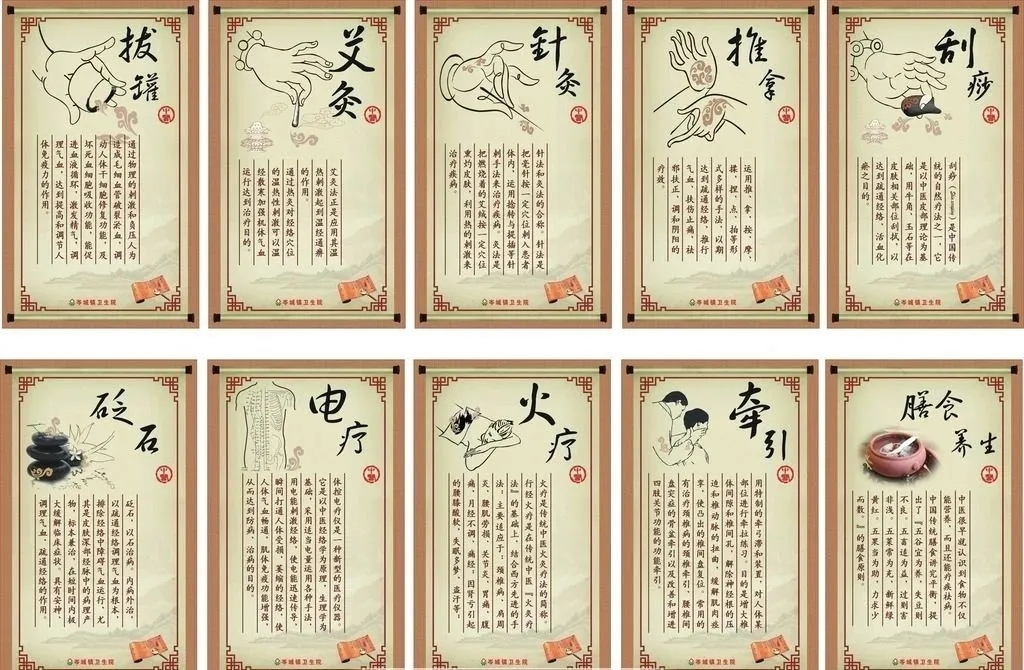 拔罐
中医
通过物理的刺激和负压人为
造成毛细血管破裂淤血，调
动人体干细胞修复功能，及
坏死血细胞吸收功能，能促
进血液循环，激发精气，调
理气血，达到提高和调节人
体免疫力的作用。
岑城镇卫生院
艾灸
中医
艾灸法正是应用其温
热刺激起到温经通痹
的作用。
通过热灸对经络穴位
的温热性刺激可以温
经散寒加强机体气血
运行达到治疗目的。
岑城镇卫生院
針灸
中医
针法和灸法的合称。针法是
把毫针按一定穴位刺入患者
体内，运用捻转与提插等针
刺手法来治疗疾病。灸法是
把燃烧着的艾绒按一定穴位
熏灼皮肤，利用热的刺激来
治疗疾病。
岑城镇卫生院
推拿
中医
运用推、拿、按、摩、
揉、捏、点、拍等形
式多样的手法，以期
达到疏通经络，推行
气血，扶伤止痛，祛
邪扶正，调和阴阳的
疗效。
岑城镇卫生院
刮痧
中医
是以中医皮部理论为基
础，用牛角，玉石等在
皮肤相关部位刮拭，以
达到疏通经络，活血化
瘀之目的。
岑城镇卫生院
砭石
中医
砭石，以石治病。内病外治，
以疏通经络调理气血为根本，
排除经络中障碍气血运行，尤
其是皮肤深部经脉中的病理产
物，标本兼治，在短时间内极
大缓解临床症状，具有安神，
调理气血，疏通经络的作用。
岑城镇卫生院
电疗
中医
体控电疗仪是一种新型的医疗仪器。
它是以中医经络学为原理，生理学为
基础，采用适当电量运用各种手法，
用电能刺激经络，使电能迅速传导，
瞬间打通人体受损，萎缩的经络，使
人体气血畅通，肌体免疫功能增强，
从而达到防病，治病的目的。
岑城镇卫生院
火疗
中医
火疗是传统中医火灸疗法的简称。
行经火疗是在传统中医『火灸疗
法』的基础上，结合西方先进的手
法：主要适应于：颈椎病，肩周
炎，腰肌劳损，关节炎，胃痛，腹
痛，月经不调，痛经：因肾亏引起
的腰膝酸软，失眠多梦，盗汗等：
岑城镇卫生院
牵引
中医
用特制的牵弓滞和装置，对人体某
部位进行牵拉练习。目的是增大椎
体间隙和椎间孔，解除神经根的压
迫和椎动脉的扭曲，缓解肌肉痉
挛，使凸出的椎间盘复位。常用的
有治疗颈椎病的颈椎牵引，腰椎间
盘突症的骨盆牵引以及改善和增进
四肢关节功能的功能牵引。
岑城镇卫生院
膳食养生
中医
中医很早就认识到食物不仅
能营养，而且还能疗疾祛病，
中国传统膳食讲究平衡，提
出了『五谷宜为养，失豆则
不良。五畜适为益，过则害
非浅。五菜常为充，新鲜绿
黄红。五果当为助，力求少
而数。』的膳食原则。
岑城镇卫生院